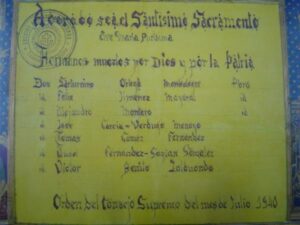 Adorado sea el Santisimo Sacramento
Ave Maria Purisima
Hermanos muertos por Dios y por la Pátria
Don Saturnino Ortega Montealegre Pbro
id Felix Jimenez Mayoral id
id Alejandro Montero id
id Jose Garcia-Verdugo Menayo
id Tomas Gómez Fernandez
id Juan Fernandez-Sanguino Gonzalez
id Victor Benito Zalduondo
Orden del Consejo Supremo del mes de Julio 1940